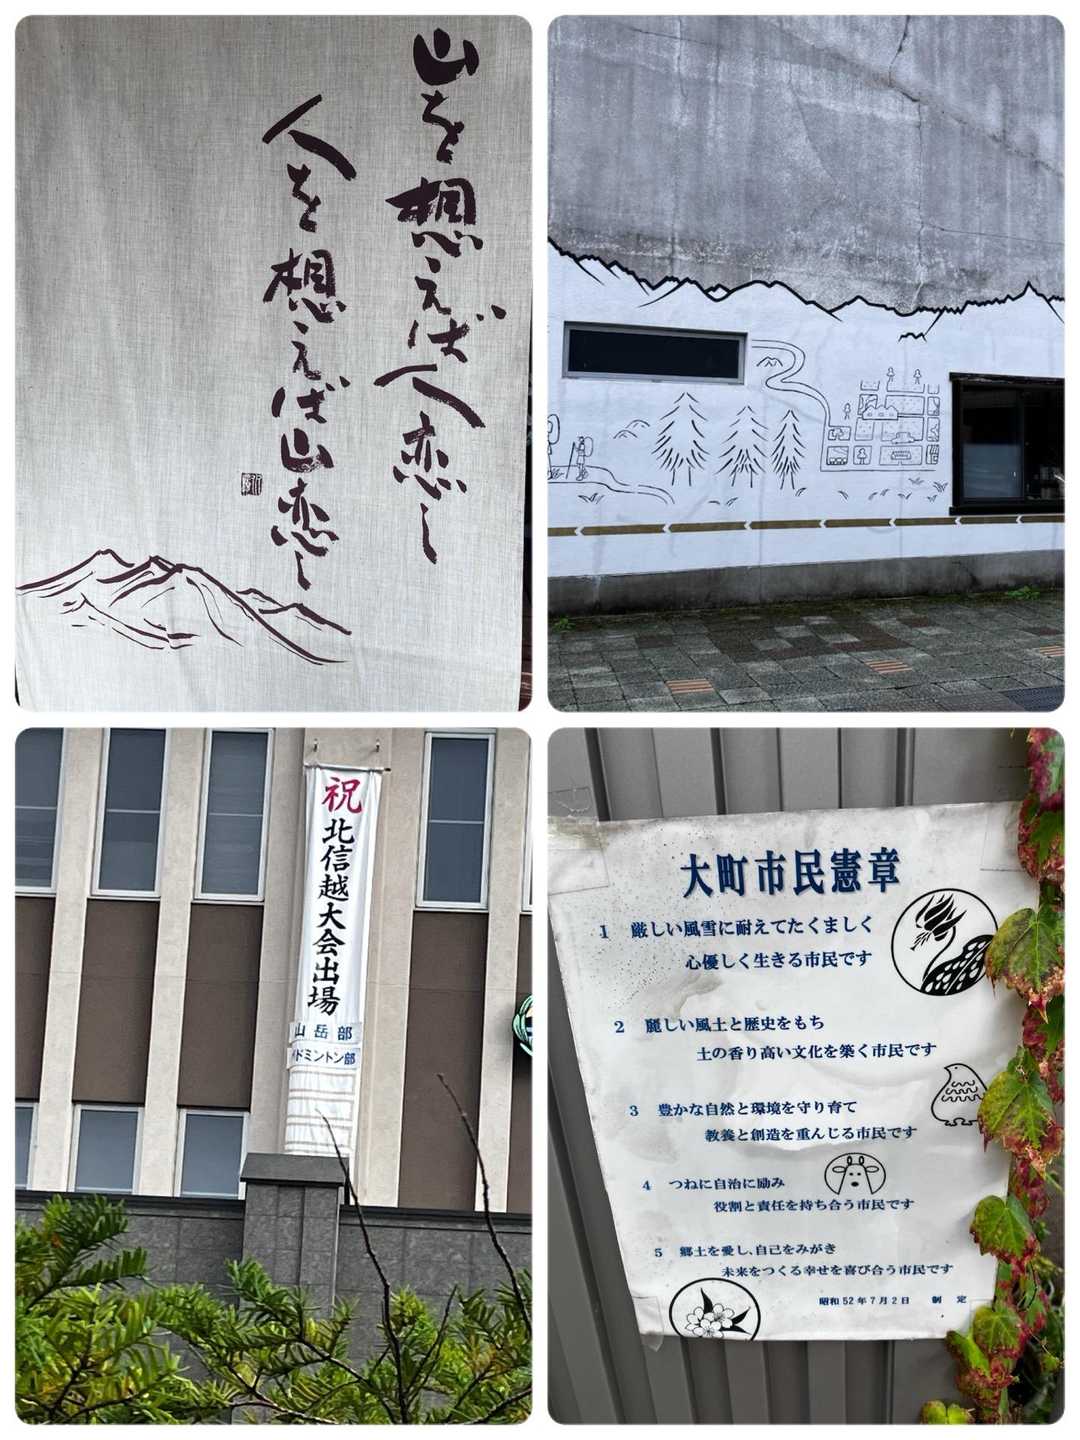 山を想えば人恋し
人を想えば山恋し
祝
北信越大会出場
山岳部
バドミントン部
大町市民憲章
1 厳しい風雪に耐えてたくましく
心優しく生きる市民です
2 麗しい風土と歴史をもち
土の香り高い文化を築く市民です
3 豊かな自然と環境を守り育て
教養と創造を重んじる市民です
4 つねに自治に励み
役割と責任を持ち合う市民です
5 郷土を愛し、自己をみがき
未来をつくる幸せを喜び合う市民です
昭和52年7月2日 制定